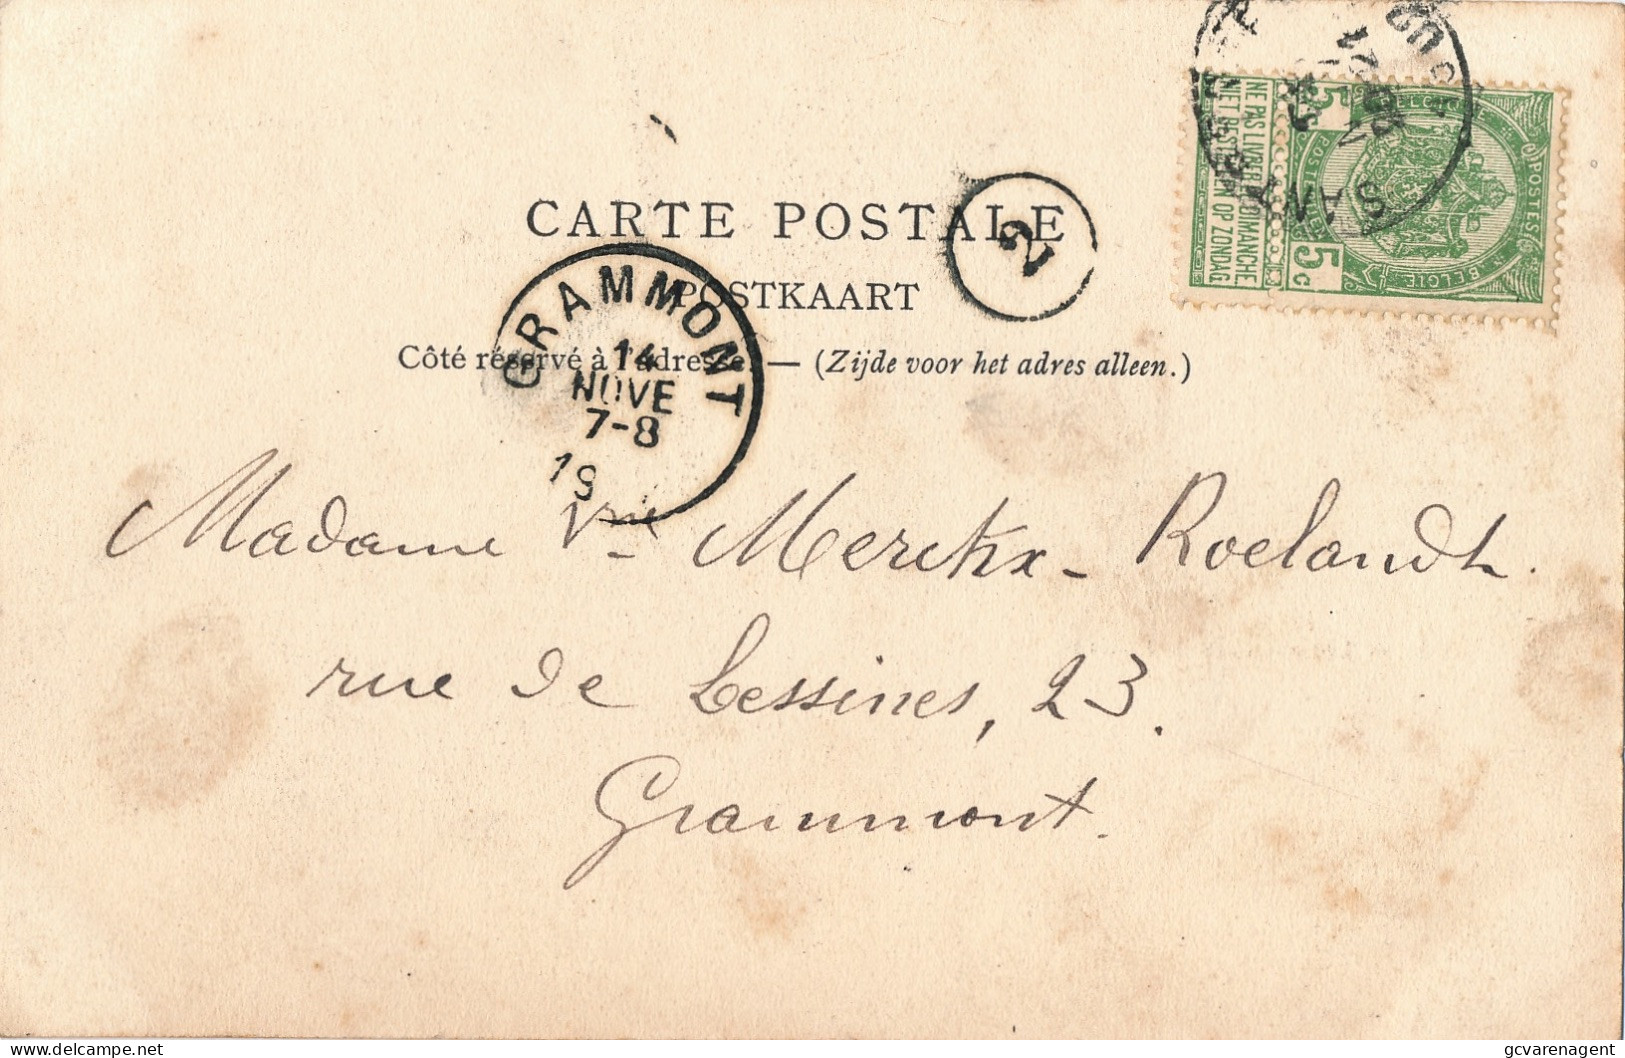 CARTE POSTALE
2
POSTKAART
Côté réservé à l'adresse. — (Zijde voor het adres alleen.)
GRAMMONT
14
NOVE
7-8
19
NE PAS LIVRER LE DIMANCHE
NIET BESTELLEN OP ZONDAG
5c
5c
POSTES
BELGIE
Madame Vve Merckx-Roelandt.
rue de Lessines, 23.
Grammont.
gcvarenagent